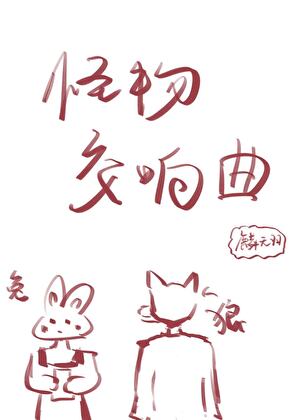 怪物
交响曲
麟天羽
兔
狼